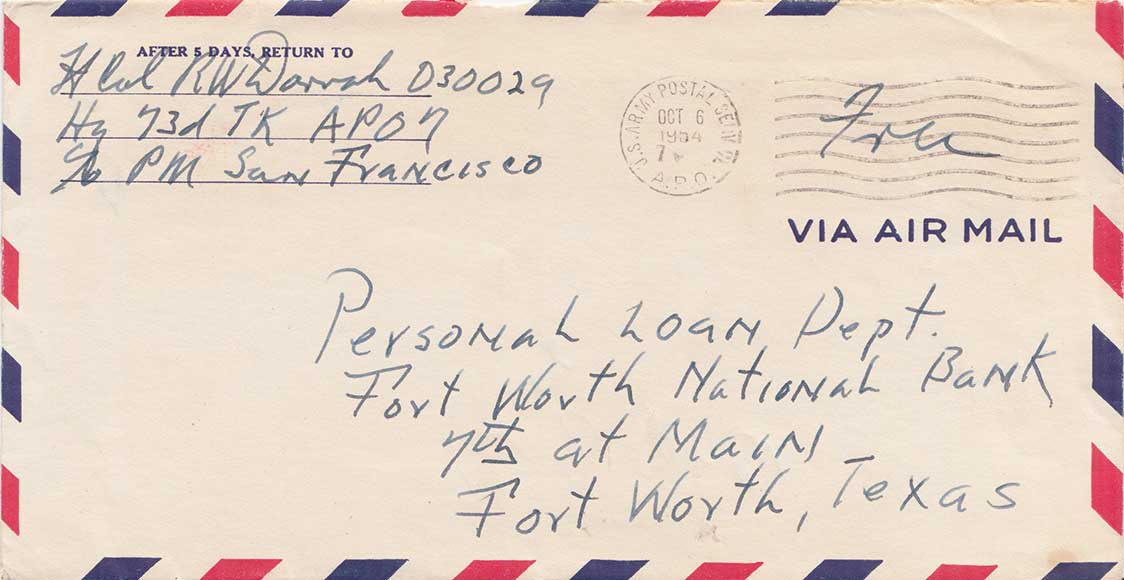 AFTER 5 DAYS, RETURN TO
Lt Col RW Darrah 030029
Hq 73d TK APO 7
c/o PM San Francisco
U.S. ARMY POSTAL SERVICE
OCT 6
1954
7
A.P.O.
Free
VIA AIR MAIL
Personal Loan Dept.
Fort Worth National Bank
7th at Main
Fort Worth, Texas